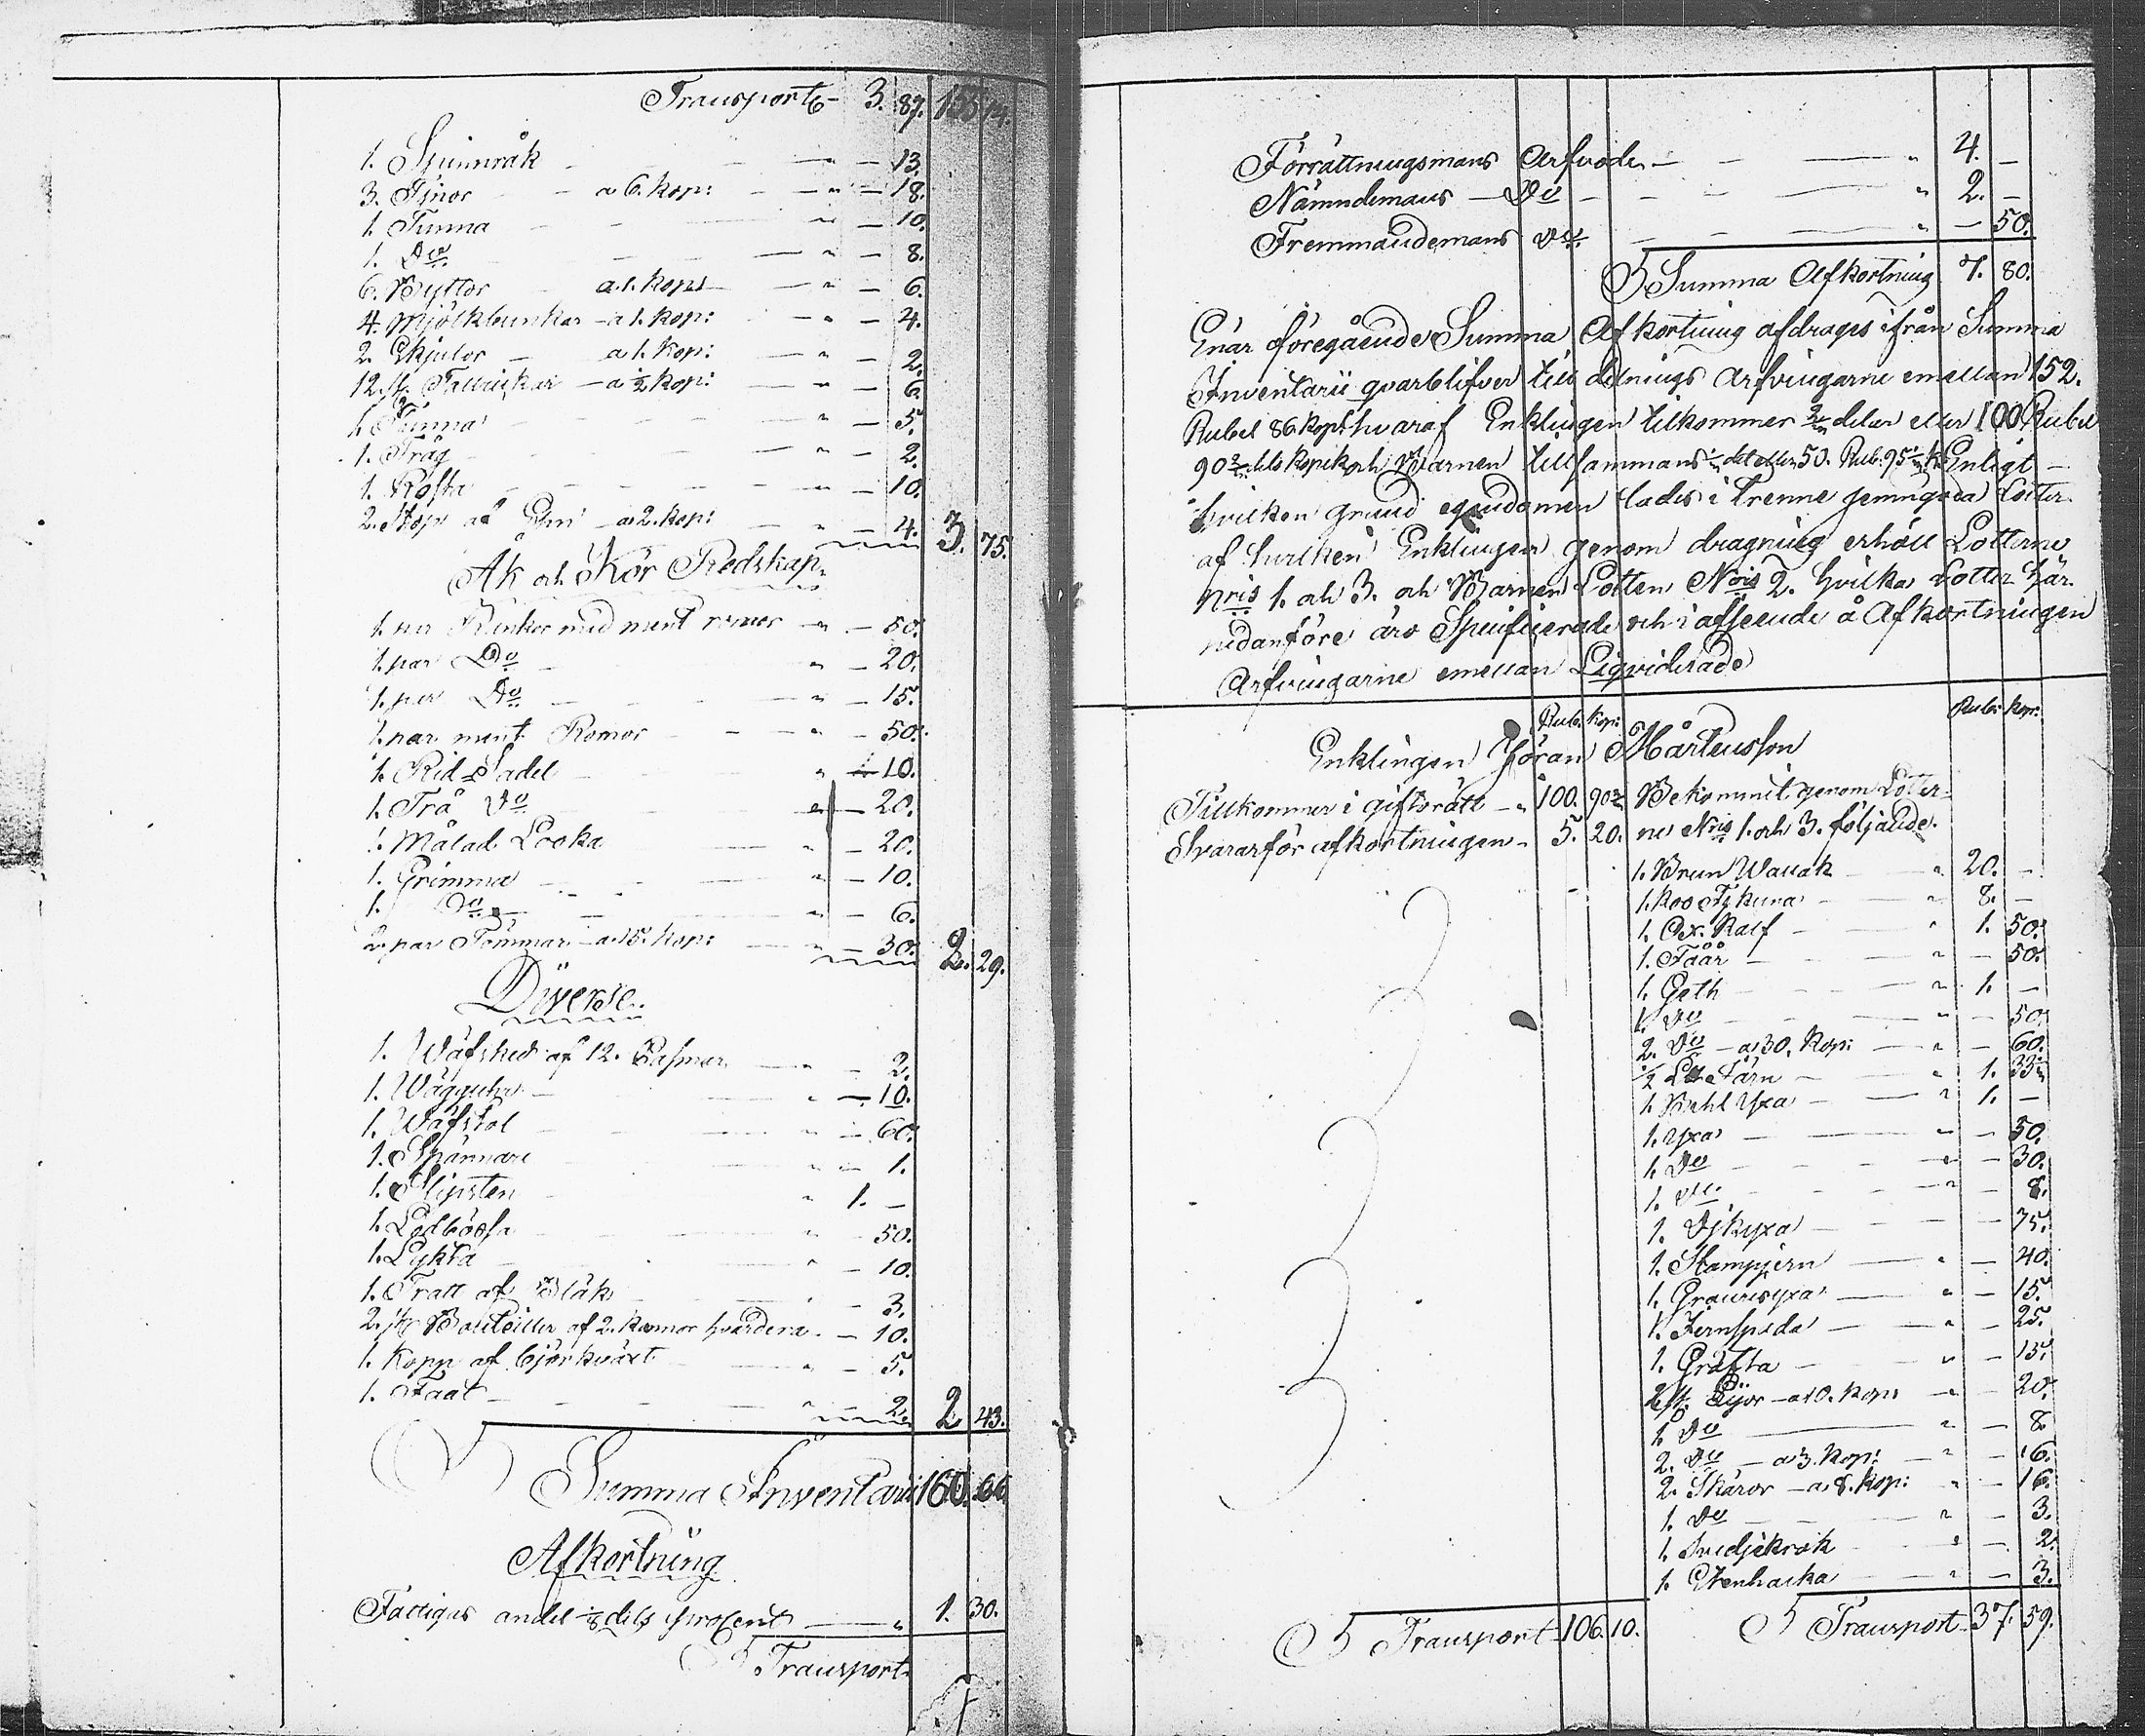 Transport 3. 87. 153 14.
1. Spinnråk " — 13.
3. Tjnor a 6. kop: " — 18.
1. Tunna " — 10.
1. Do " — 8.
6. Byttor a 1. kop: " — 6.
4. Mjölkbunkar a 1. kop: " — 4.
2. Skjulor a 1. kop: " — 2.
12. st. Tallrickar a ½ kop: " — 6.
1. Tunna " — 5.
1. Tråg " — 2.
1. " — 10.
2. Stop af a 2. kop: " — 4. 3. 75.
Åk och Kör Redskap
1. par med " — 50.
1. par Do " — 20.
1. par Do " — 15.
1. par Remor " — 50.
1. Rid Sadel " — 10.
1. Trä Do " — 20.
1. Målad Looka " — 20.
1. Grimma " — 10.
1. Do " — 6.
2. par Tömmar a 15. kop: — 30. 2. 29.
Diverse
1. Wäfsked af 12. Pasmar " — 2.
1. Wägguhr " — 10.
1. Wäfstol " — 60.
1. Spännare " — 1.
1. Slipsten " 1. —
1. Lodbössa " — 50.
1. Lykta " — 10.
1. Tratt af Bläk — 3.
2. st. Bouteiller af 2. kannor hvardera — 10.
1. Kopp af björkväxt " — 5.
1. Faat " — 2. 2 43.
Summa Inventarii 160. 66
Afkortning
Fattigas andel ⅛ dels procent " 1. 30.
Transport
Förrättningsmans Arfvode " 4. —
Nämndemans Do " 2. —
Fremmandemans Do " — 50.
Summa Afkortning 7. 80.
Enär föregående Summa Afkortning afdrages ifrån Summa
Inventarii qvarblifver till delnings Arfvingarne emellan 152.
Rubel 86. kop: hvaraf Enklingen tilkommer ⅔ delar eller 100 Rubel
90 ⅔ dels kopek och Barnen tillsammans ⅓ del eller 50. Rub: 95 ⅓ k: Enligt
hvilken grund egendomen lades i trenne jemngoda Lotter
af hvilken Enklingen genom dragning erhöll Lotterne
Nris 1. och 3. och Barnen Lotten Nris 2. hvilka Lotter här
nedanföre äro Specificerade och i afseende å Afkortningen
Arfvingarne emellan Liqviderade
Rub: kop: Rub: kop:
Enklingen Jöran Mårtensson
Tillkommer i giftorätt " 100. 90⅔ Bekommit genom Lotter-
Svarar för afkortningen 5. 20. ne Nris 1. och 3. följande.
1. Brun Wallak " 20. —
1. Koo " 8. —
1. Ox. Kalf " 1. 50.
1. Fåår " — 50.
1. Geth " 1. —
1. Do " — 50.
2. Do a 30. kop: " — 60.
½ Färn " 1. 33⅓
1. Bihl Yxa " 1. —
1. Yxa " — 50.
1. Do " — 30.
1. Do " — 8.
1. — 75.
1. Stampjern " — 40.
1. " — 15.
1. Jernspada " — 25.
1. Gräfta " — 15.
2 st. Lijor a 10. kop: " — 20.
1 Do " — 8.
2. Do a 3. kop: " — 6.
2. Skäror a 8. kop: " — 16.
1. Do " — 3.
1. Svedjekrok " — 2.
1. Stenhacka " — 3.
Transport 106. 10. Transport 37. 59.